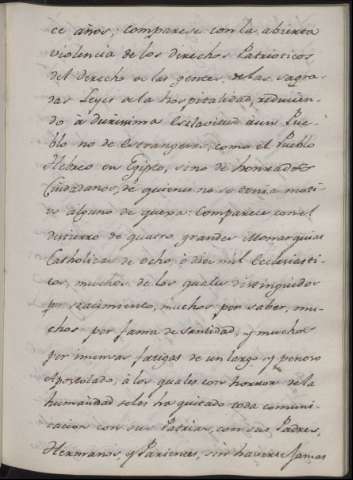 ce años; comparese con la abierta
violencia de los direchos Patrioticos
del derecho de las gentes, de las sagra-
das Leyes de la hospitalidad, reducien-
do à durissima esclavitud à un Pue-
blo no de estrangeros, como el Pueblo
Hebreo en Egipto, sino de honrados
Ciudadanos, de quienes no se tenia moti-
vo alguno de quexa: Comparese con el
destierro de quatro grandes Monarquias
Catholicas de ocho, ò diez mil Ecclesiasti-
cos, muchos de los quales distinguidos
por nacimiento, muchos por saber, mu-
chos por fama de santidad, y muchos
por inmensas fatigas de un largo, y penoso
Apostolado, à los quales con horror de la
humanidad se les ha quitado toda comuni-
cacion con sus Patrias, con sus Padres,
Hermanos, y Parientes, sin haverse jamas